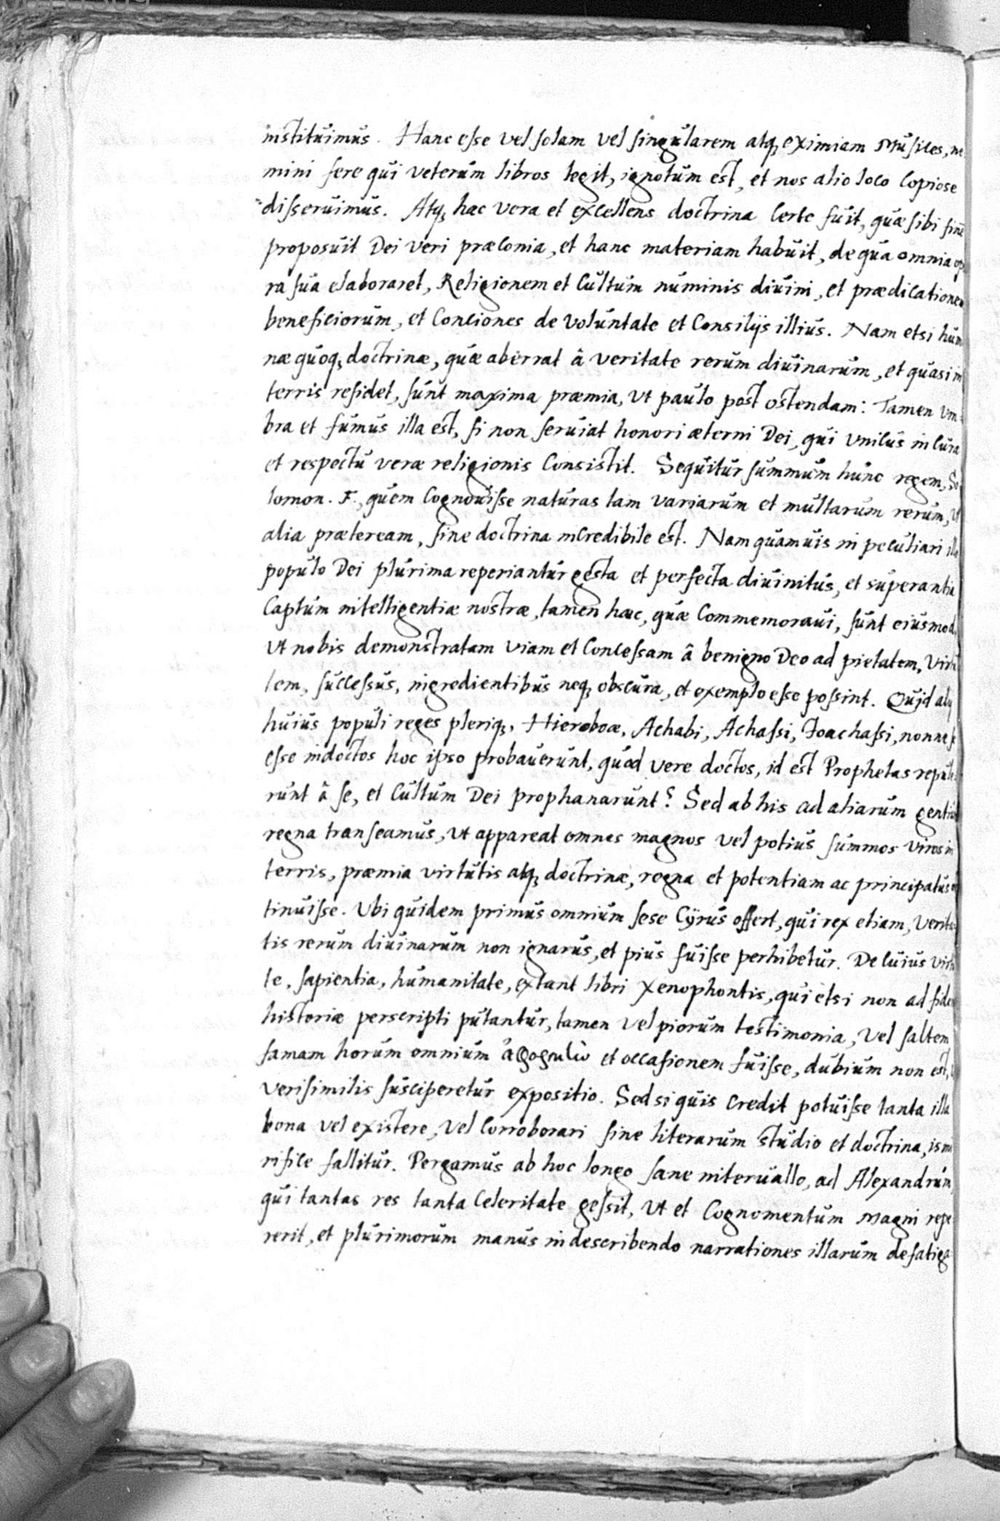 instituimus. Hanc esse vel solam vel singularem atq, eximiam Musices, ne
mini fere qui veterum libros legit, ignotum est, et nos alio loco copiose
disseruimus. Atq, hæc vera et excellens doctrina certe fuit, quæ sibi finē
proposuit Dei veri præconia, et hanc materiam habuit, de qua omnia op
ra sua elaboraret, Religionem et Cultum numinis divini, et prædicationem
beneficiorum, et Conciones de voluntate et Consilijs illius. Nam etsi hum
næ quoq, doctrinæ, quæ aberrat â veritate rerum divinarum, et quasi in
terris residet, sunt maxima præmia, ut paulo post ostendam: Tamen vm
bra et fumus illa est, si non serviat honori æterni Dei, qui vnicus in cura
et respectu veræ religionis Consistit. Sequitur summum hunc regem, So
lomon. F., quem Cognouisse naturas tam variarum et multarum rerum, vt
alia præteream, sine doctrina incredibile est. Nam quamuis in peculiari illo
populo Dei plurima reperiantur gesta et perfecta divinitus, et superantia
Captum intelligentiæ nostræ, tamen hæc, quæ Commemoraui, sunt eiusmod
Vt nobis demonstratam viam et Concessam â benigno Deo ad pietatem, virtu
tem, successus, ingredientibus neq, obscura, et exemplo esse possint. Quid alij
huius populi reges pleriq, Hieroboæ, Achabi, Achassi, Joachassi, nonne s
esse indoctos hoc ipso probauerunt, quòd vere doctos, id est Prophetas repule
runt â se, et Cultum Dei prophanarunt? Sed ab his ad aliarum gentiū
regna transeamus, vt appareat omnes magnos vel potius summos viros in
terris, præmia virtutis atq, doctrinæ, regna et potentiam ac principatus
tinuisse. Vbi quidem primus omnium sese Cÿrus offert, qui rex etiam, verita
tis rerum divinarum non ignarus, et pius fuisse perhibetur. De cuius virtu
te, sapientia, humanitate, extant libri Xenophontis, qui etsi non ad fidem
historiæ perscripti putantur, tamen vel piorum testimonia, vel saltem
famam horum omnium et occasionem fuisse, dubium non est,
verisimilis susciperetur expositio. Sed si quis credit potuisse tanta illa
bona vel existere, vel Corroborari sine literarum studio et doctrina, is mi
rifice fallitur. Pergamus ab hoc longo sane interuallo, ad Alexandrum,
qui tantas res tanta celeritate gessit, vt et Cognomentum Magni repe
rerit, et plurimorum manus in describendo narrationes illarum defatiga